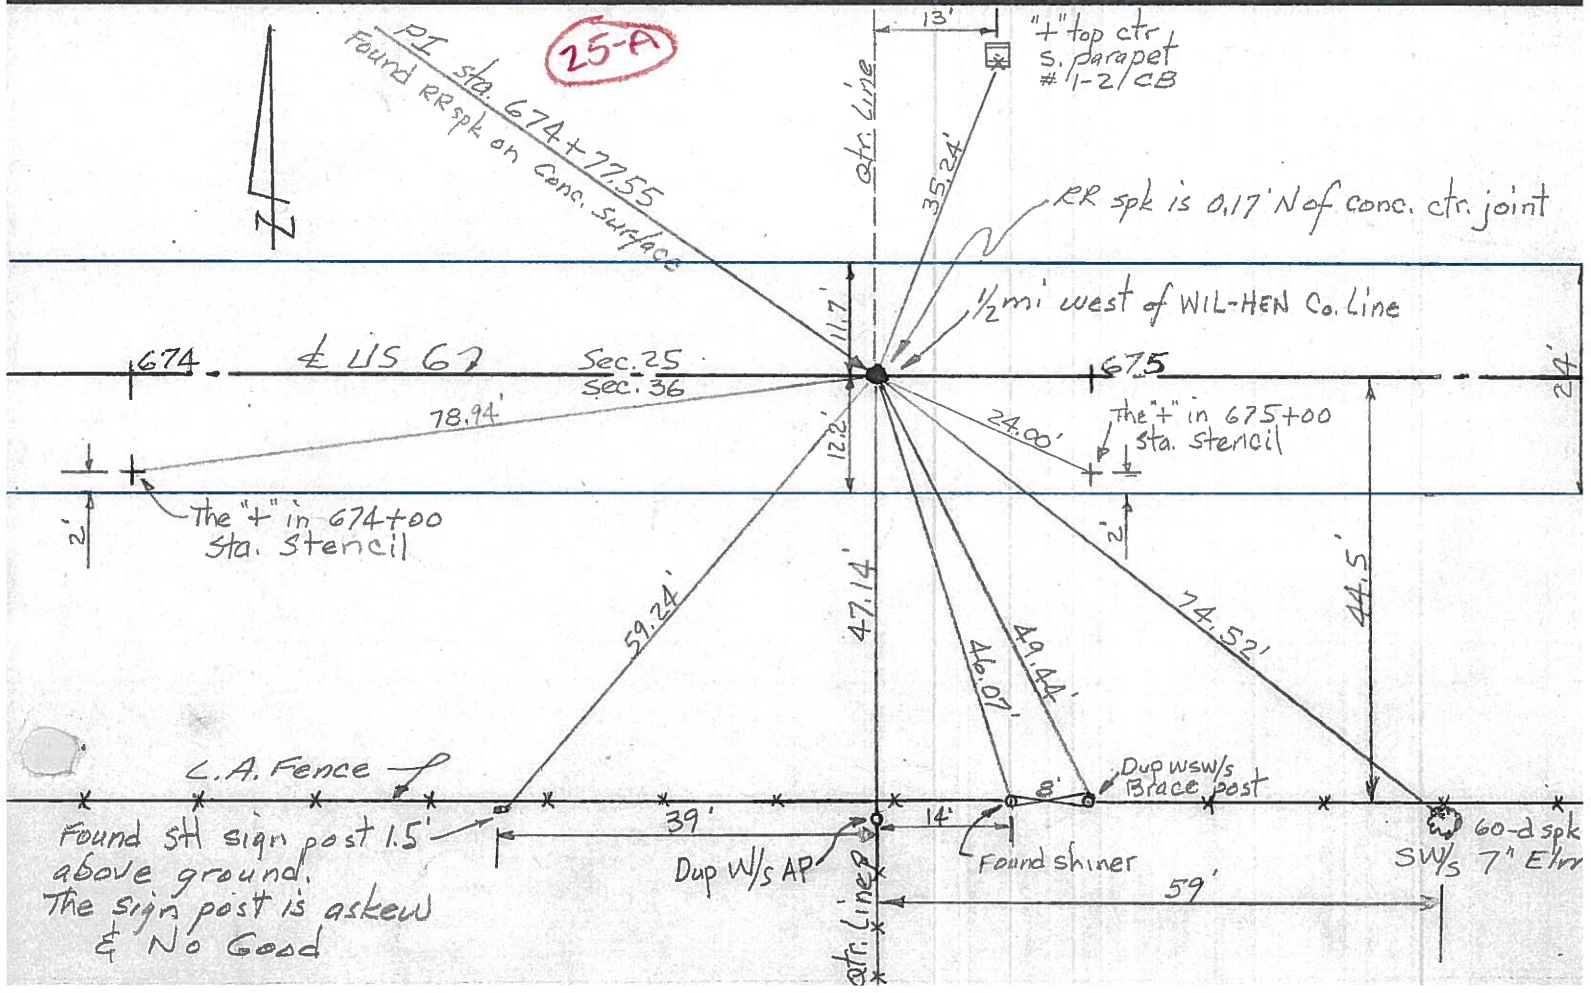 25-A
13'
"+" top ctr
S. parapet
# 1-2/CB
PI sta. 674+77.55
Found RR spk on conc. surface
Qtr. Line
35.24'
N
RR spk is 0.17' N of conc. ctr. joint
1/2 mi west of WIL-HEN Co. Line
11.7'
674
℄ US 67
Sec. 25
Sec. 36
675
24'
78.94'
12.2'
24.00'
The "+" in 675+00
sta. stencil
The "+" in 674+00
sta. stencil
2'
2'
59.24'
47.14'
46.07'
49.44'
74.52'
44.5'
L.A. Fence
Dup WSW/s
Brace post
8'
Found stl sign post 1.5'
above ground.
The sign post is askew
& No Good
39'
14'
Dup W/s AP
Found shiner
60-d spk
SW/s 7" Elm
59'
Qtr. Line